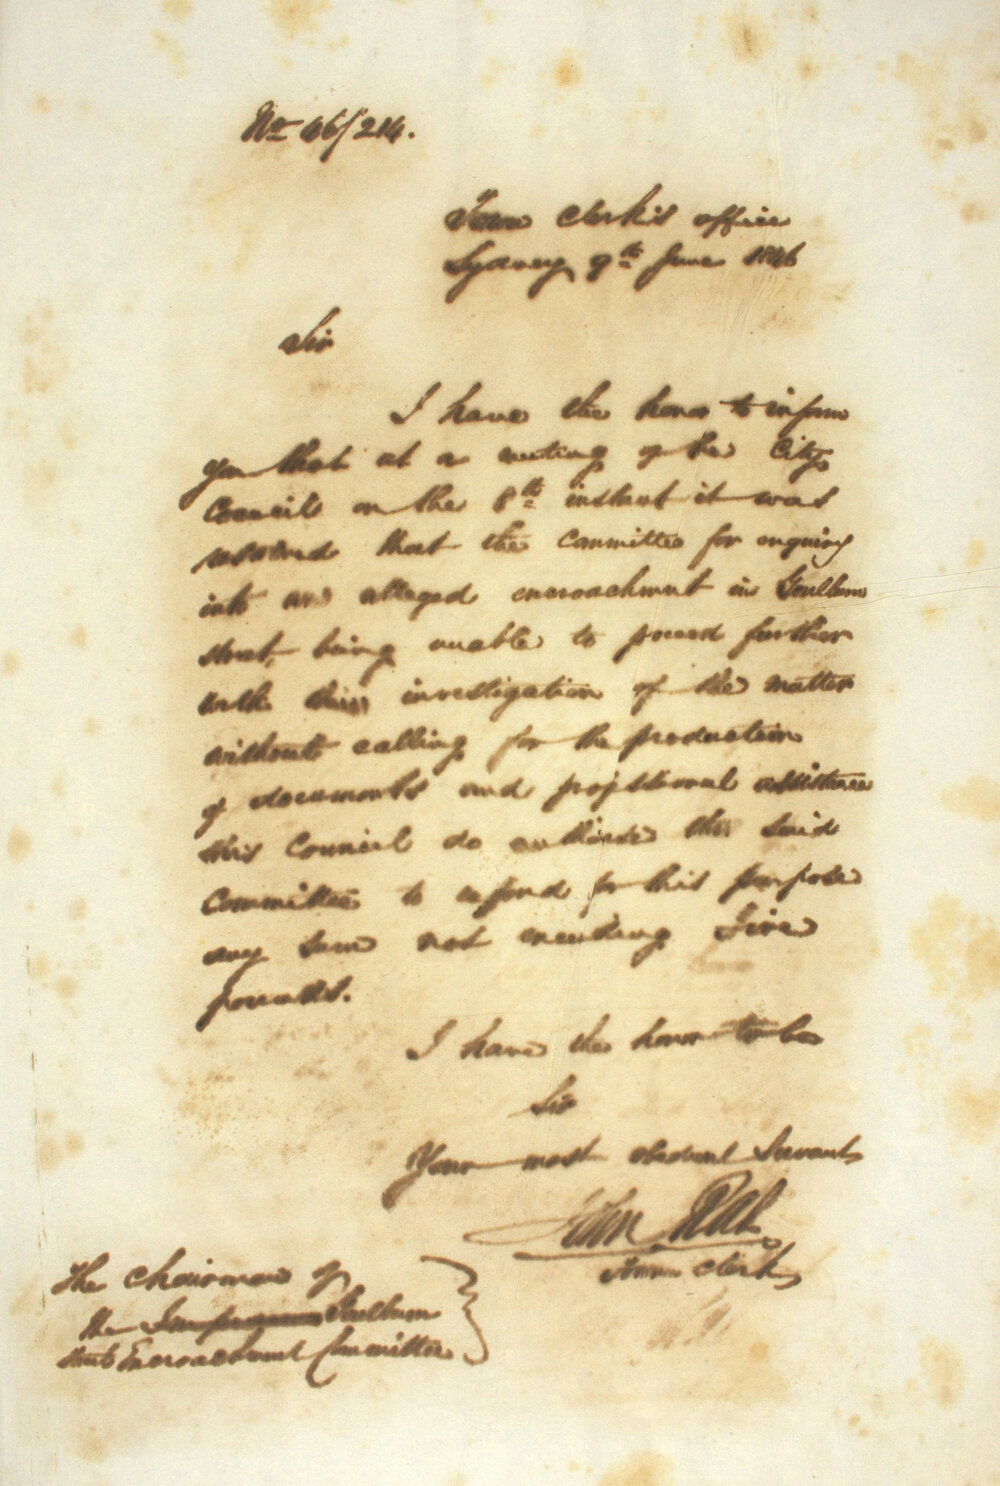 No 46/214.
Town Clerk's office
Sydney 9th June 1846
Sir
I have the honor to inform
you that at a meeting of the City
Council on the 8th instant it was
resolved that the Committee for enquiry
into an alleged encroachment in Goulburn
street, being unable to proceed further
with their investigation of the matter
without calling for the production
of documents and professional assistance
this Council do authorise the said
Committee to expend for this purpose
any sum not exceeding Five
pounds.
I have the honor to be
Sir
Your most obedient Servant
John Rae
Town Clerk
The Chairman of
the Goulburn
street Encroachment Committee